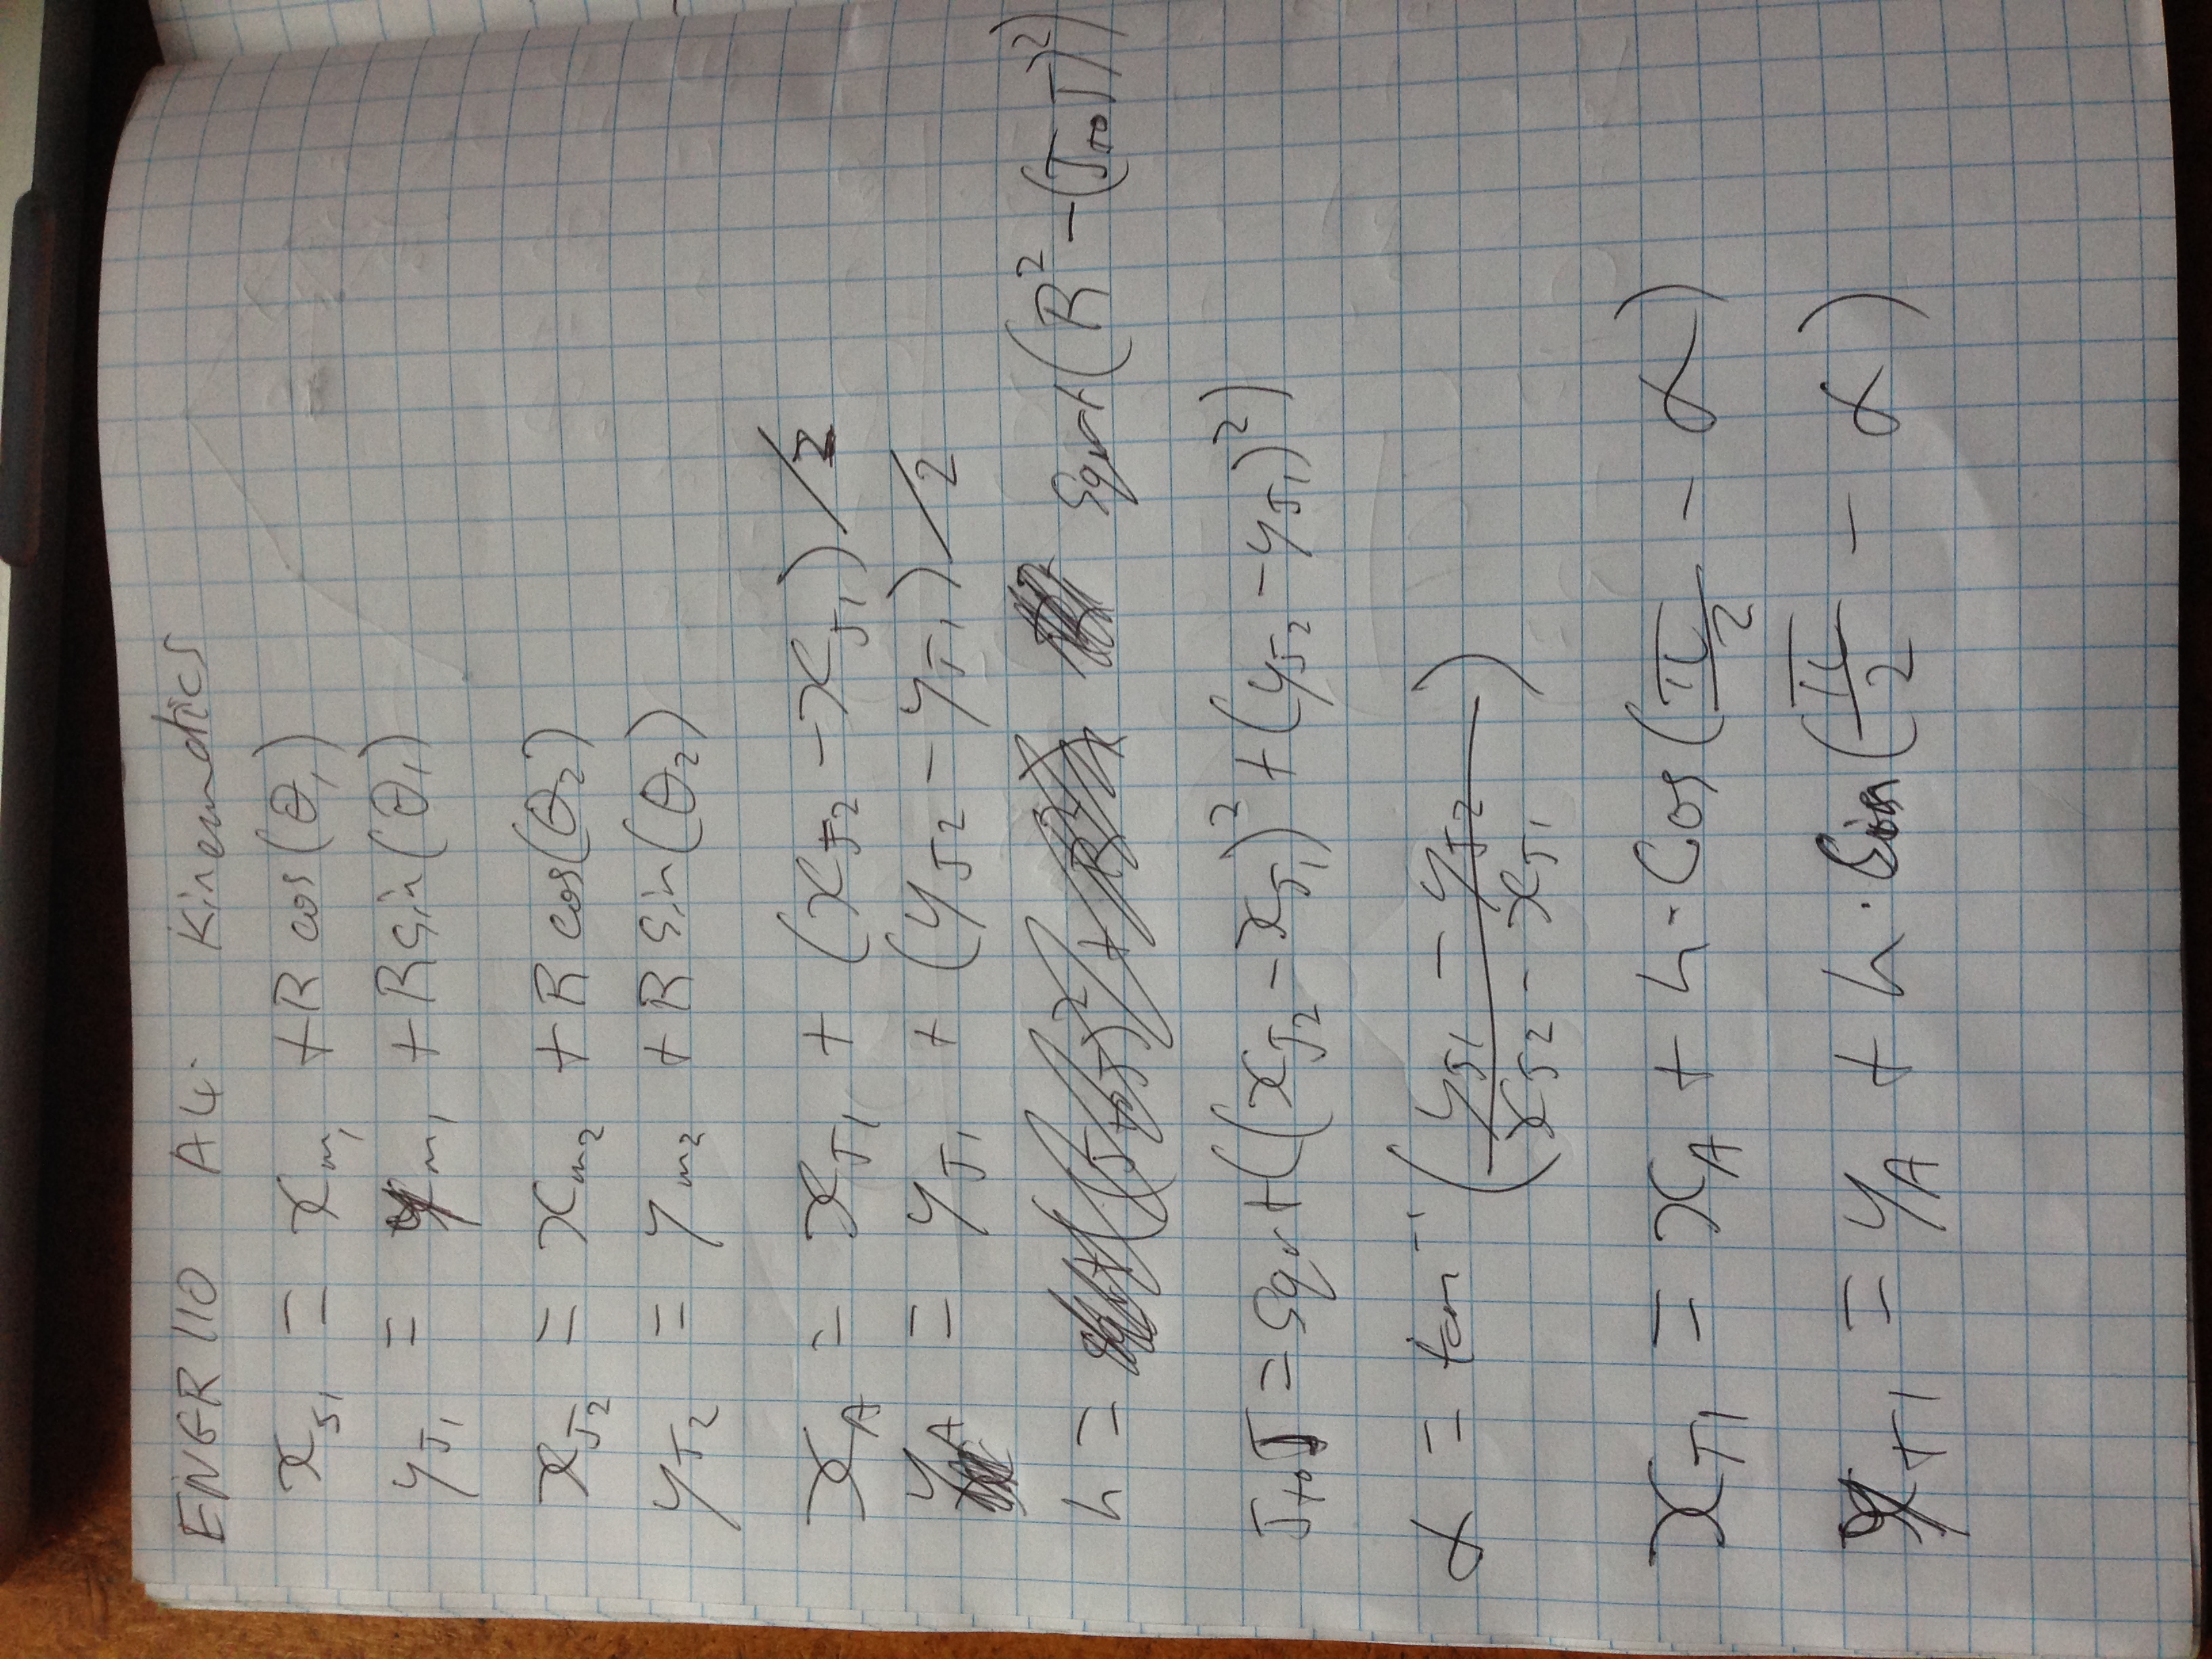 ENGR 110 A4. Kinematics
x_J1 = x_m1 + R cos(θ_1)
y_J1 = y_m1 + R sin(θ_1)
x_J2 = x_m2 + R cos(θ_2)
y_J2 = y_m2 + R sin(θ_2)
x_A = x_J1 + (x_J2 - x_J1)/2
y_A = y_J1 + (y_J2 - y_J1)/2
h = sqrt(R² - (JtoJ)²)
JtoJ = sqrt((x_J2 - x_J1)² + (y_J2 - y_J1)²)
α = tan⁻¹((y_J1 - y_J2)/(x_J2 - x_J1))
x_T1 = x_A + h · Cos(π/2 - α)
y_T1 = y_A + h · Sin(π/2 - α)